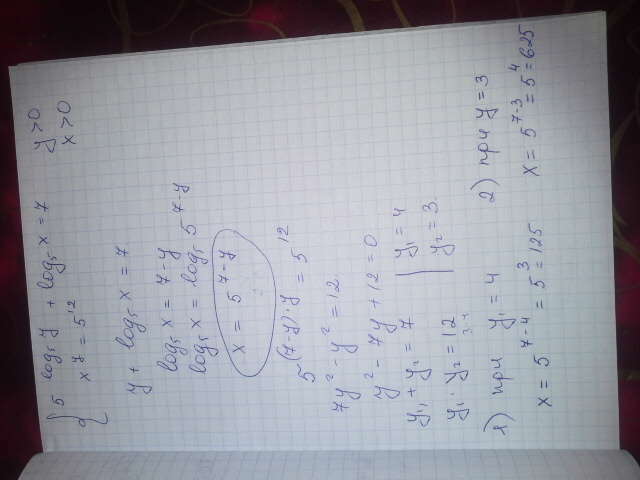 { 5^(log₅ y) + log₅ x = 7    y > 0
x^y = 5^12    x > 0
y + log₅ x = 7
log₅ x = 7 - y
log₅ x = log₅ 5^(7-y)
x = 5^(7-y)
5^((7-y)·y) = 5^12
7y² - y² = 12
y² - 7y + 12 = 0
y₁ + y₂ = 7    | y₁ = 4
y₁ · y₂ = 12    | y₂ = 3
3·4
1) при y₁ = 4    2) при y = 3
x = 5^(7-4) = 5^3 = 125    x = 5^(7-3) = 5^4 = 625